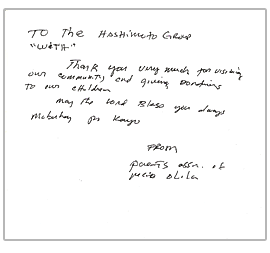 TO The Hashimoto Group
"WITH"
Thank you very much for visiting
our community and giving Donations
To our children
may the Lord Bless you always
mabuhay po kayo
FROM
parents assn. of